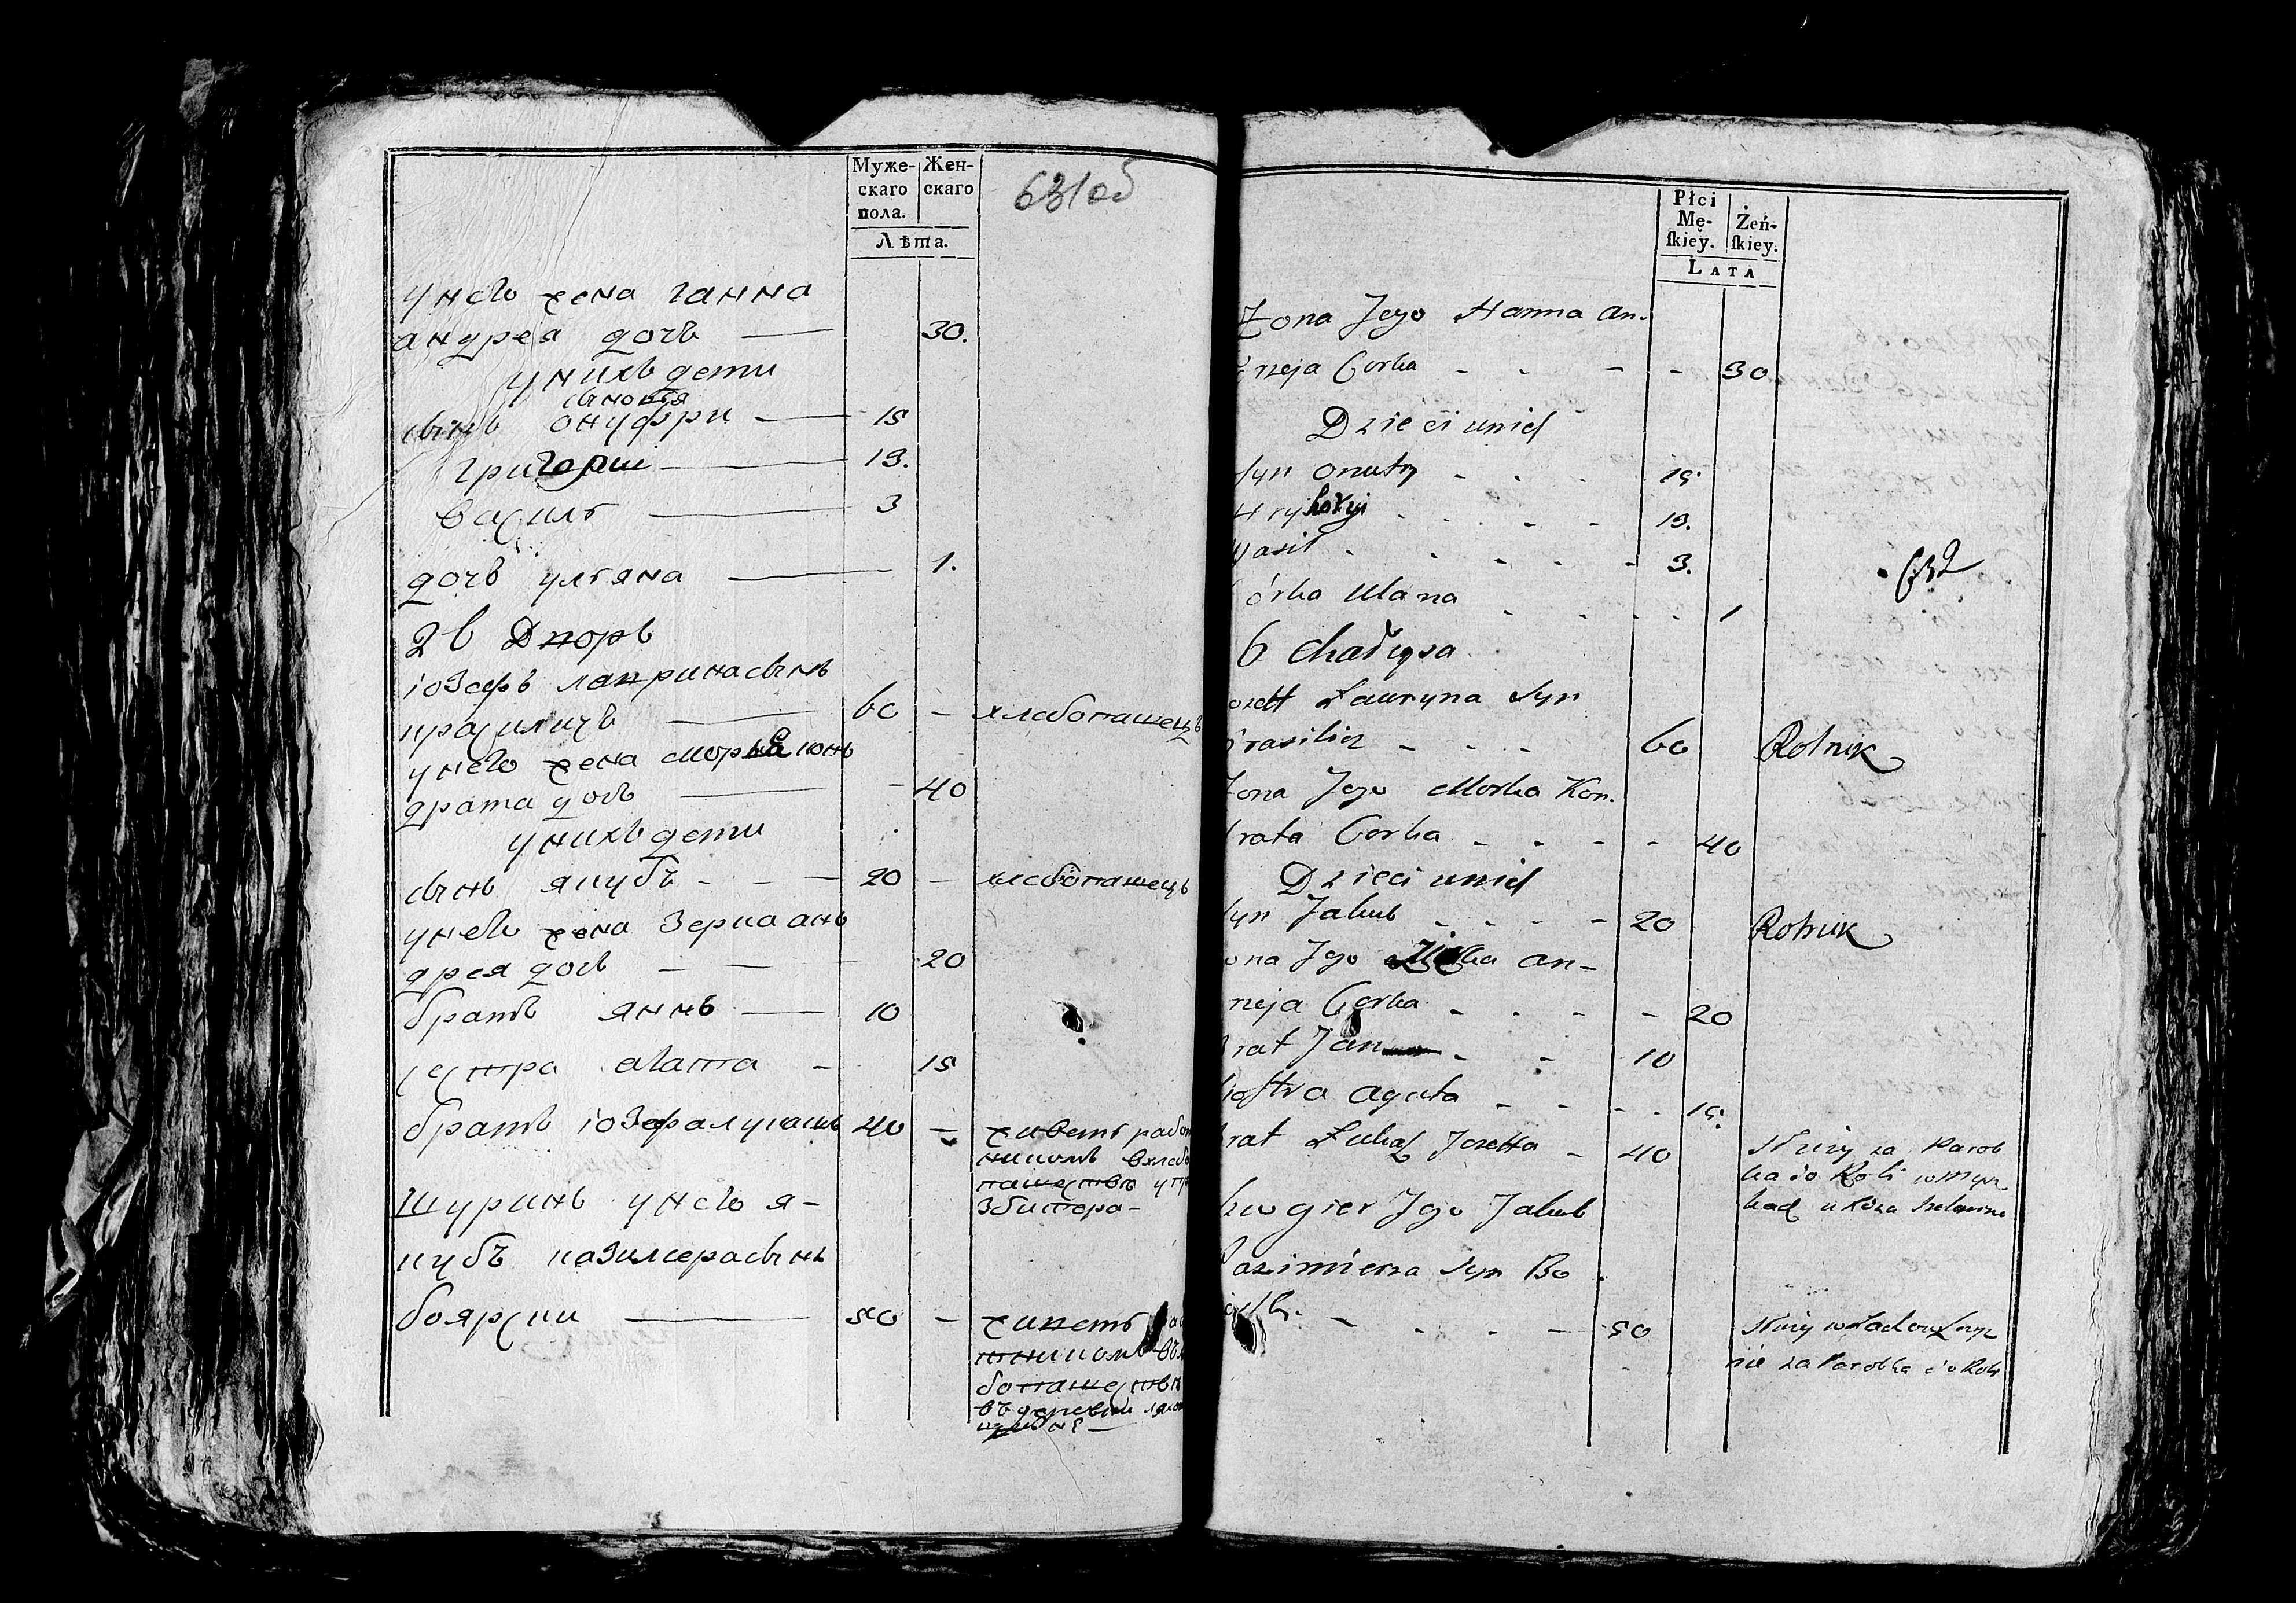 Муже-
скаго
пола.
Жен-
скаго
Лѣта.
631 об
у него жена ганна
андрея дочь — 30.
у нихъ дети
сыновья
сынъ онуфри — 15
григорш — 13.
василь — 3
дочь ульяна — 1.
2 в Дворъ
іозефъ лавринасынъ
красилицъ — 60 — хлебопашецъ
у него жена морта кон
драта дочь — 40
у нихъ дети
сынъ якубъ - - — 20 — хлебопашецъ
у него жена зерка ан
дрея дочь — — 20
братъ яннъ — 10
сестра агата - 15
братъ іозефа лукашъ 40 — живетъ рабо
никомъ в хлебо
пашество у
шуринъ у него я-
кубъ казимерасынъ
боярски — 50 — живетъ
тникомъ
бопашеств
въ деревни
Płci
Mę-
ſkiey.
Żeń-
ſkiey.
LATA
Żona Jego Hanna An.
rzeja Corka - - - - 30
Dzieci unich
Syn Onufry - - - 15.
Hryhoryi - - - - 13.
Wasil - - - - - 3.
órka Ulana - - - - 1
632
6 Chałupa
ozeff Lauryna Syn
rasilicz - - - 60 Rolnik
Żona Jego Morka Kon.
drata Corka - - - - 40
Dzieci unich
Syn Jakub - - - - 20 Rolnik
ona Jego An-
rzeja Corka - - - - 20
rat Jan - - 10
iostra Agata - - - - 15.
rat Lukaſz Jozeffa - 40 Służy za Parob
ka do Roli w
zwogier Jego Jakub
Kazimierza Syn Bo
- - - - 50 Służy w
nie za Parobka do Roli